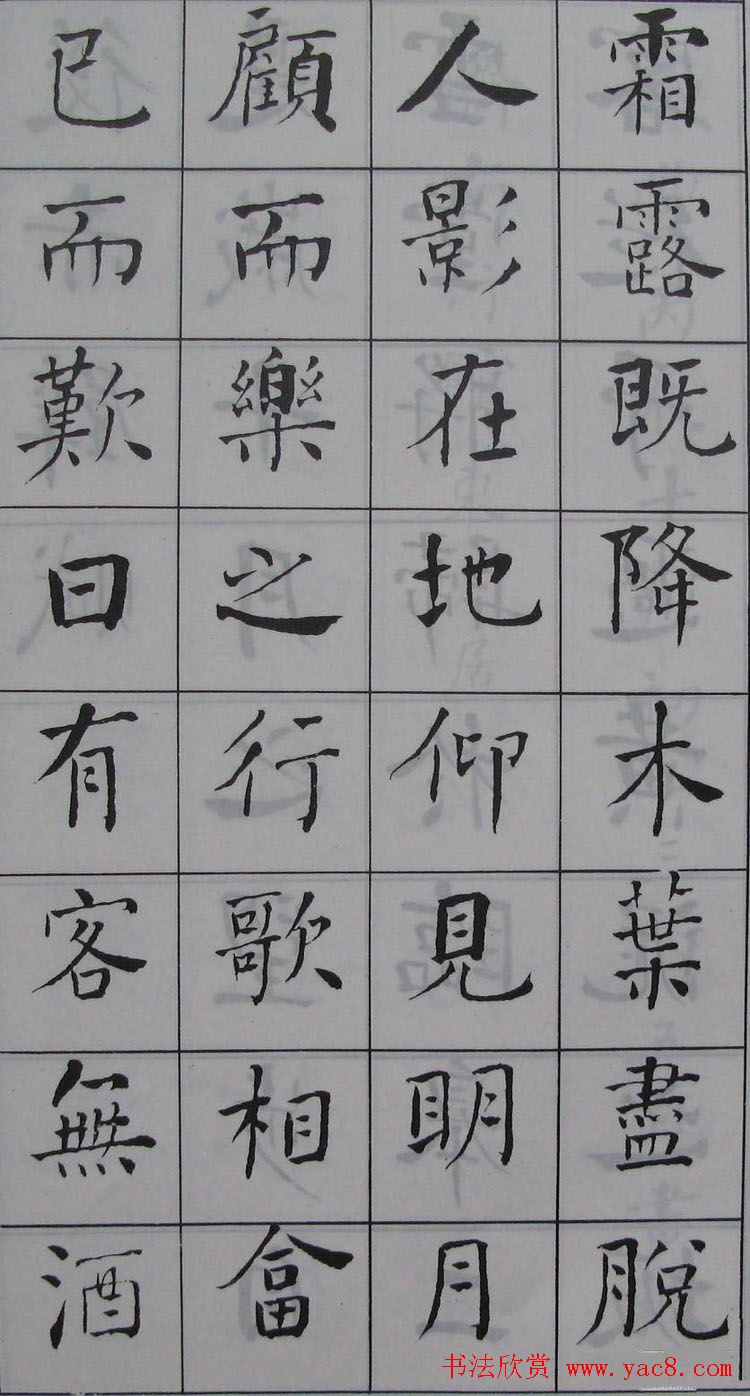 霜露既降木葉盡脫
人影在地仰見明月
顧而樂之行歌相畣
已而歎曰有客無酒
书法欣赏 www.yac8.com